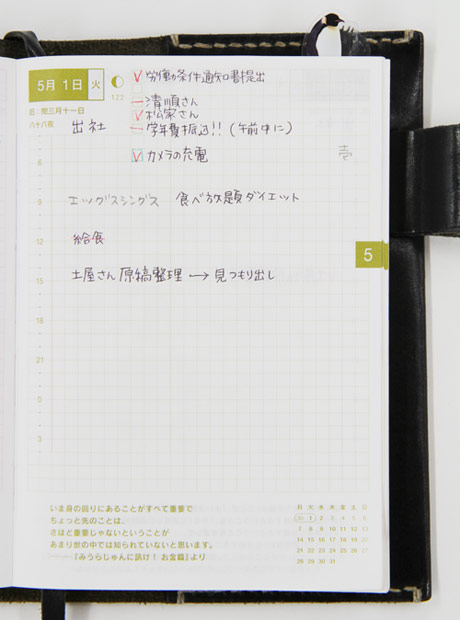 5月 1日 火
労働条件通知書提出
122
清順さん
旧:閏三月十一日
松家さん
八十八夜
出社
学年費振込!!(午前中に)
カメラの充電
壱
6
9
エッグスシングス 食べ放題ダイエット
12
給食
5
土屋さん原稿整理→見つもり出し
15
18
21
0
3
いま身の回りにあることがすべて重要で
ちょっと先のことは、
さほど重要じゃないということが
あまり世の中では知られていないと思います。
『みうらじゅんに訊け! お金篇』より
月 火 水 木 金 土 日
30 1 2 3 4 5 6
7 8 9 10 11 12 13
14 15 16 17 18 19 20
21 22 23 24 25 26 27
28 29 30 31